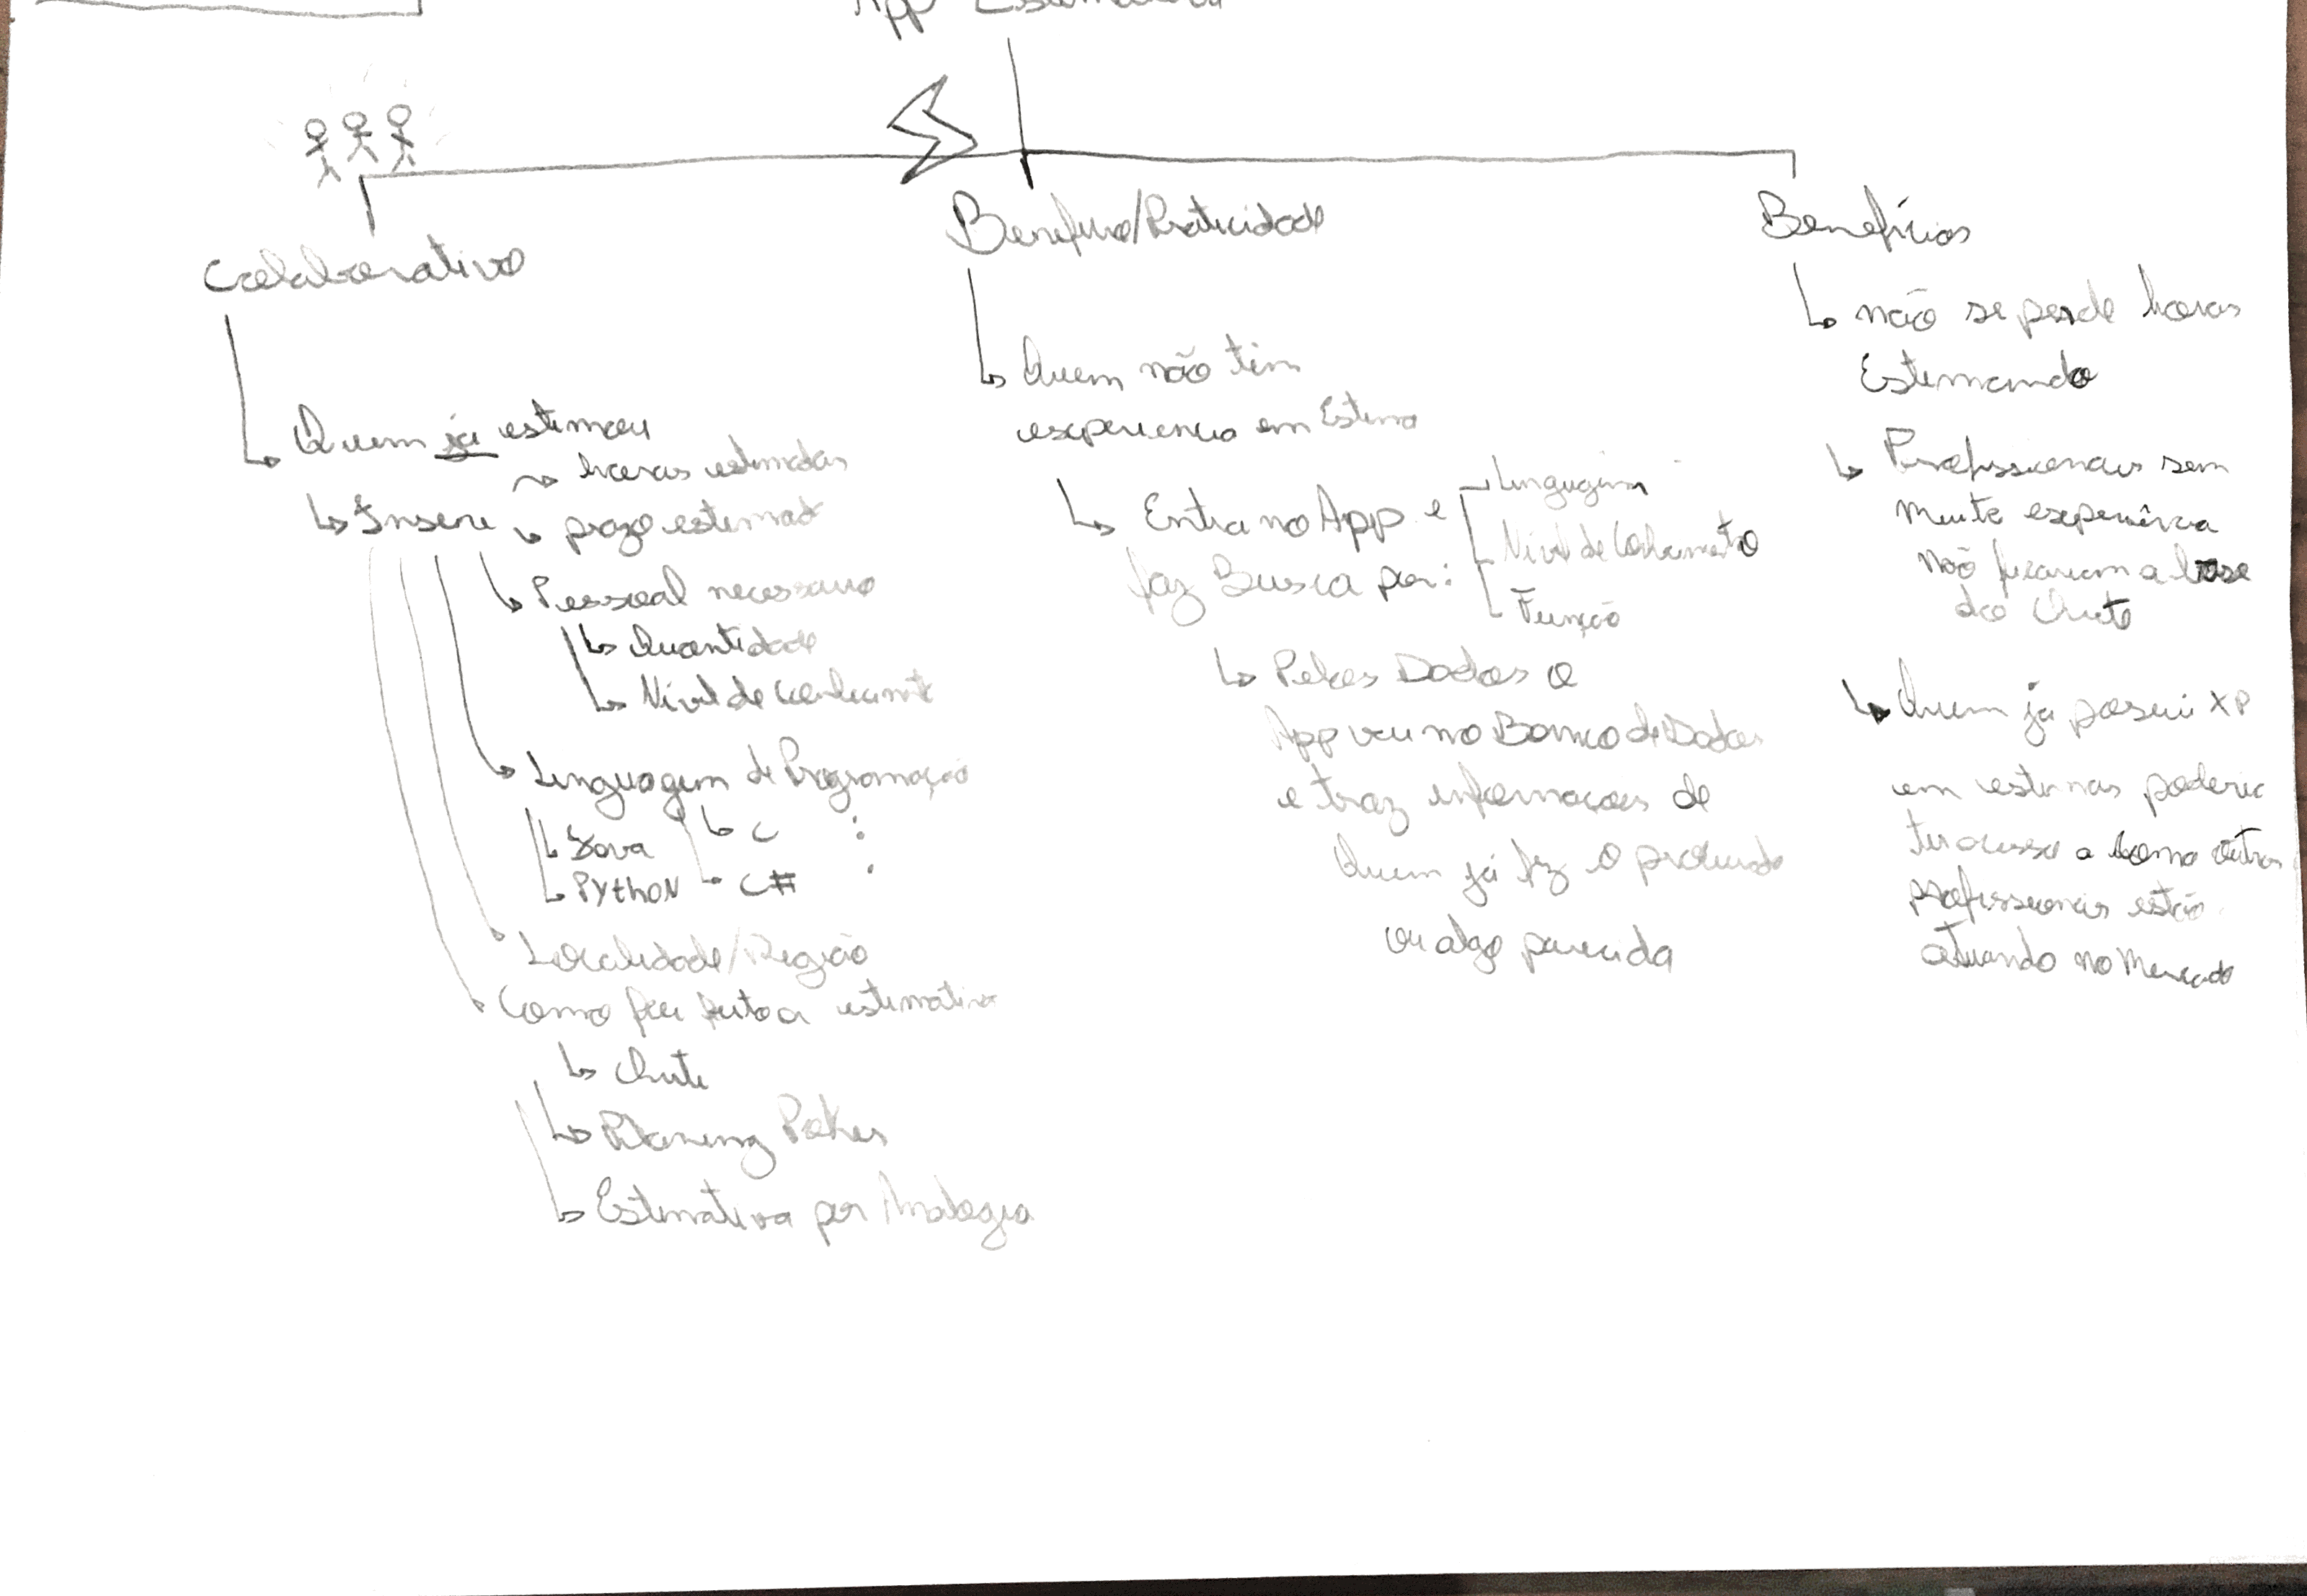 App
Colaborativo
Quem já estimou
horas estimadas
Insere prazo estimad
Pessoal necessario
Quantidade
Nivel de
Linguagem de Programação
Java C
PYthoN C#
Localidade/Região
Como foi feito a estimativa
Chute
Planing Poker
Estimativa por Analogia
Beneficio/Praticidade
Quem não tem
experiencia em Estima
Entra no App e
faz Busca por:
Linguagem
Nivel de
Função
Pelos Dados o
App vai no Banco de Dados
e traz informações de
Quem já fez o
ou algo parecido
Benefícios
não se perde horas
Estimando
Profissionais sem
muita experiência
não ficariam a base
do Chute
Quem já possui XP
em estimas poderia
ter acesso a como outros
profissionais estão
atuando no Mercado